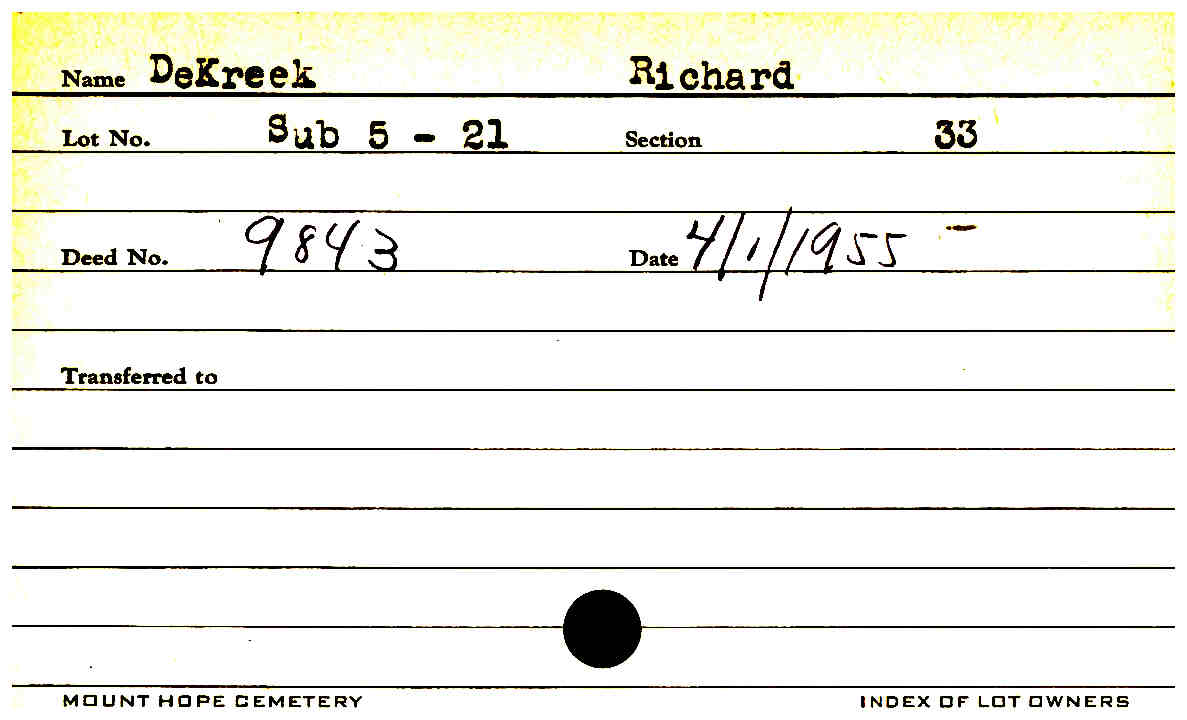 Name DeKreek Richard
Lot No. Sub 5 - 21 Section 33
Deed No. 9843 Date 4/1/1955 -
Transferred to
MOUNT HOPE CEMETERY INDEX OF LOT OWNERS